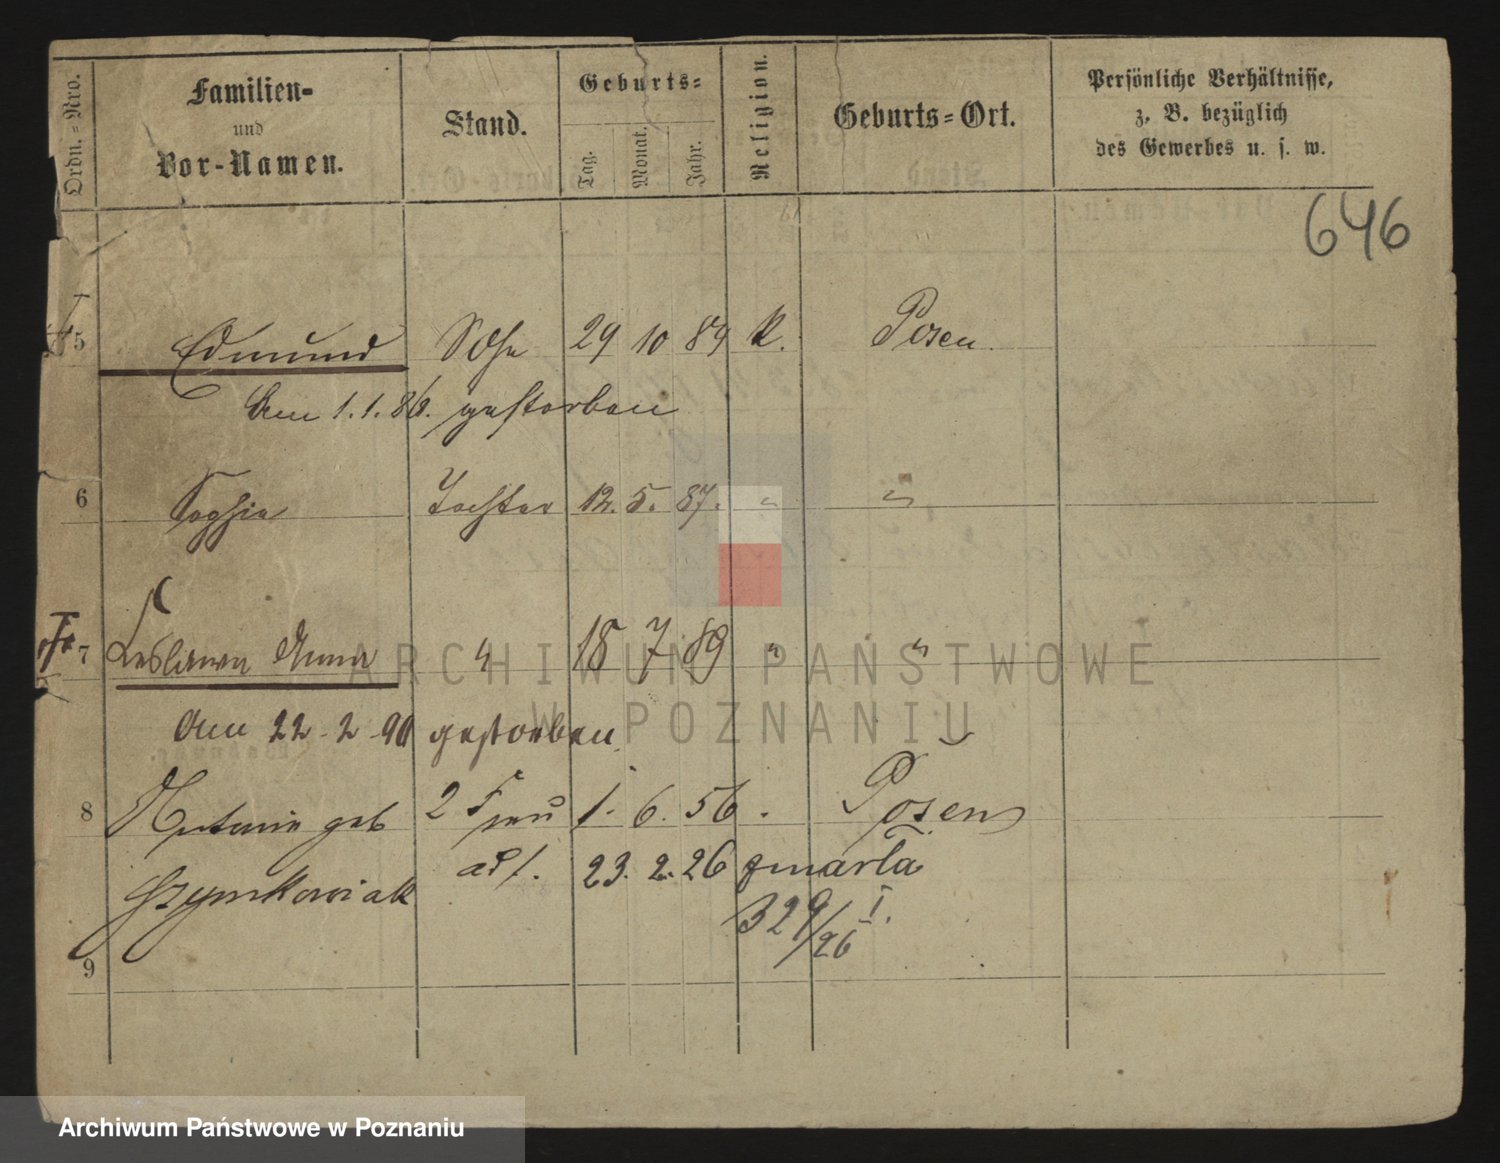 Ordn.=Nro. Familien= und Vor-Namen. Stand. Geburts= Tag. Monat. Jahr. Religion. Geburts=Ort. Persönliche Verhältnisse, z. B. bezüglich des Gewerbes u. s. w.
646
5 Edmund Sohn 29 10 89 k. Posen
Am 1.1.86. gestorben
6 Sophia Tochter 12. 5. 87. " "
7 Leslawa Anna " 18 7 89 " "
Am 22-2-90 gestorben
8 Antonie geb 2 Frau 1. 6. 56 . Posen
Szymkowiak 23. 2. 26 zmarła
329/26 I.
9
ARCHIWUM PAŃSTWOWE
W POZNANIU
Archiwum Państwowe w Poznaniu